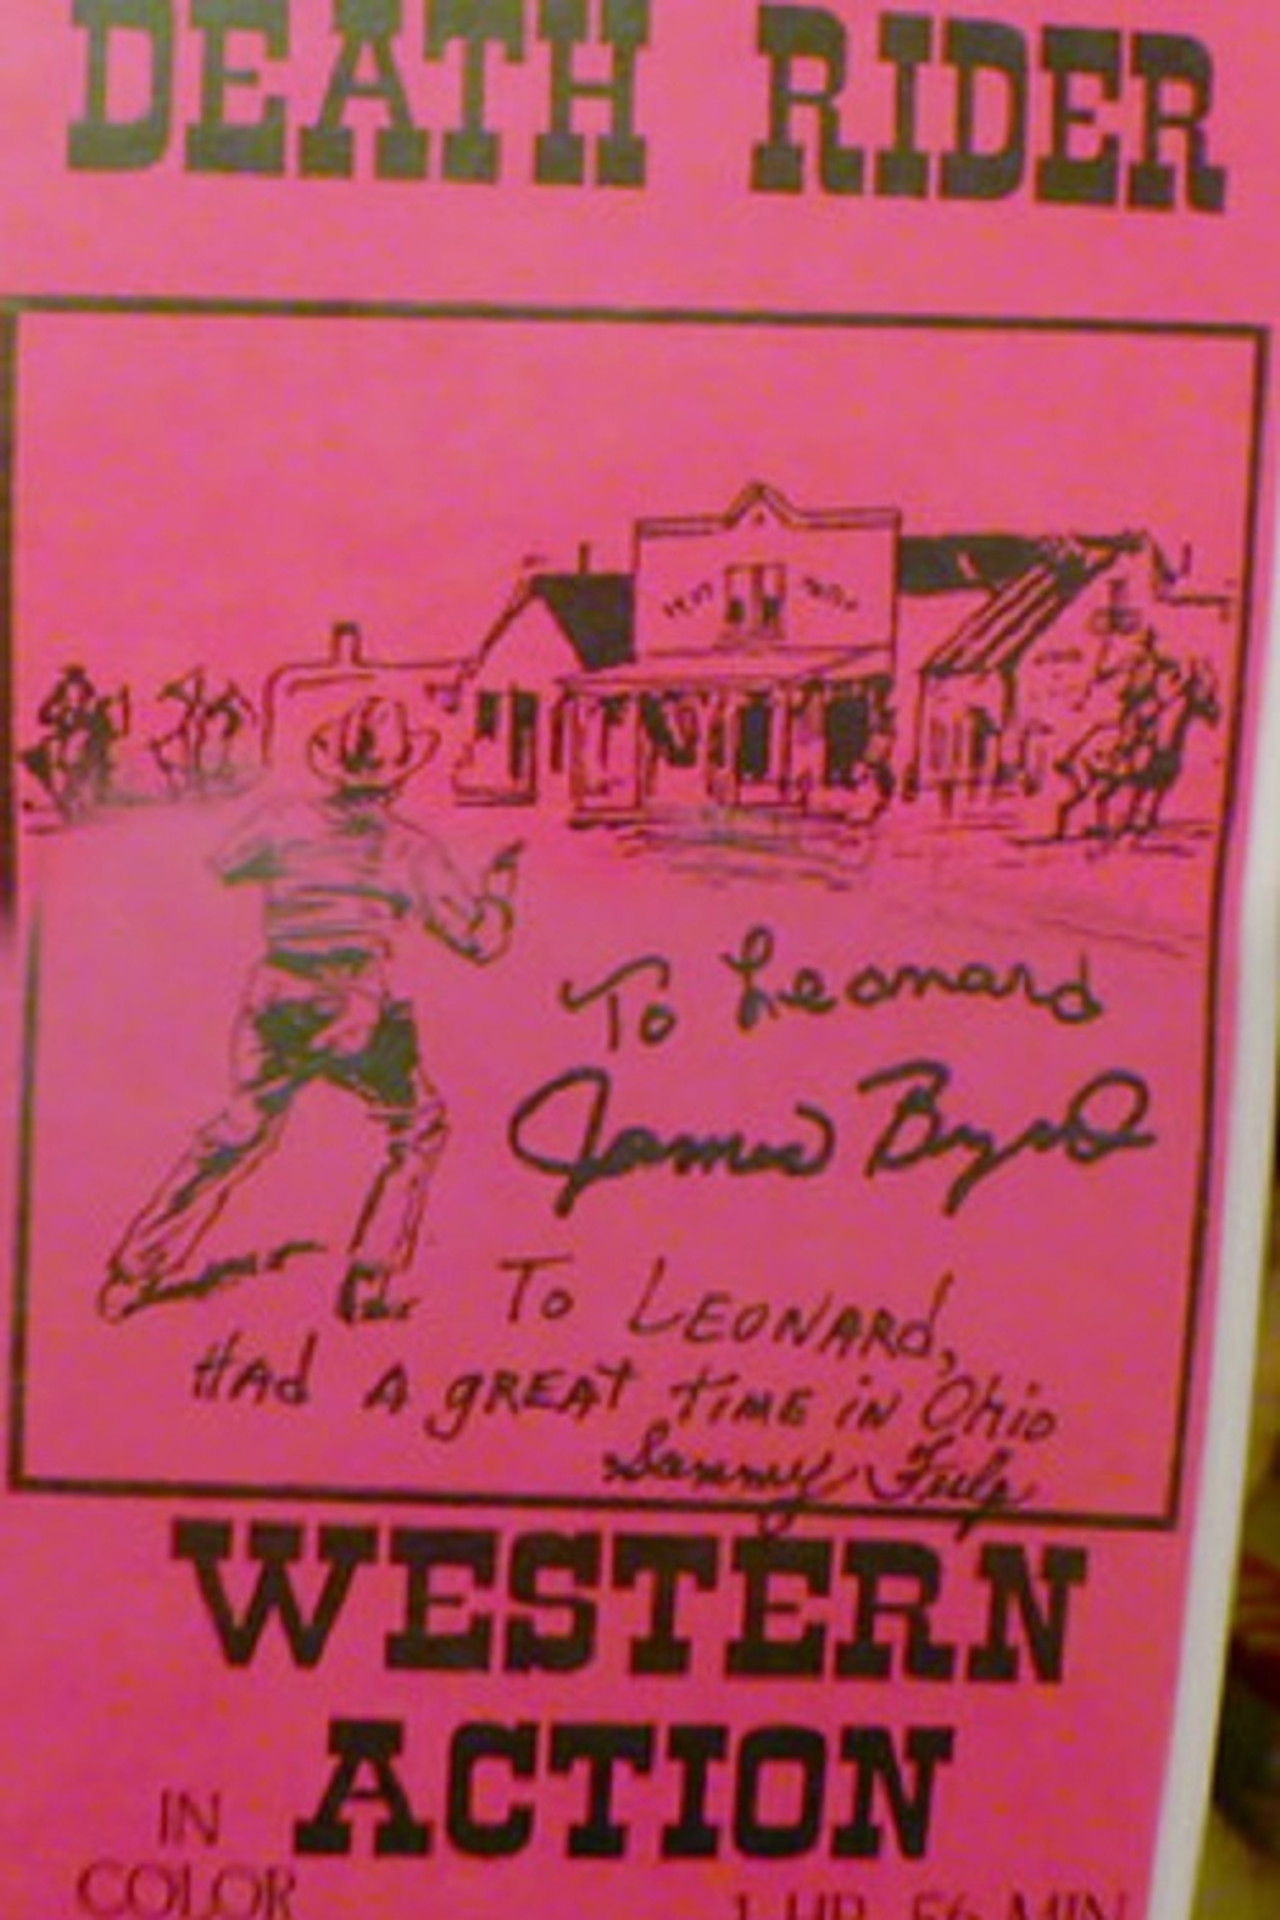 DEATH RIDER
To Leonard
James Byrd
To LEONARd,
HAd A gREAT TIME iN Ohio
Sammy Fulp
WESTERN
ACTION
IN
COLOR
1 HR. 56 MIN